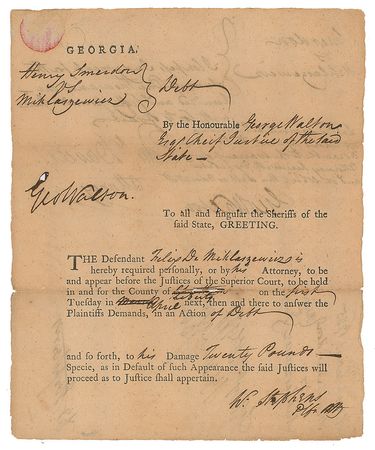 GEORGIA.
Henry Smerdon
vs
Miklaszewicz
Debt
By the Honourable George Walton
Esqr Cheif Justice of the said
State —
Geo Walton.
To all and singular the Sheriffs of the
said State, GREETING.
THE Defendant Felix De Miklaszewicz is
hereby required personally, or by his Attorney, to be
and appear before the Justices of the Superior Court, to be held
in and for the County of on the first
Tuesday in April next, then and there to answer the
Plaintiffs Demands, in an Action of Debt
and so forth, to his Damage Twenty Pounds —
Specie, as in Default of such Appearance the said Justices will
proceed as to Justice shall appertain.
Wm Stephens
Plfs Atty